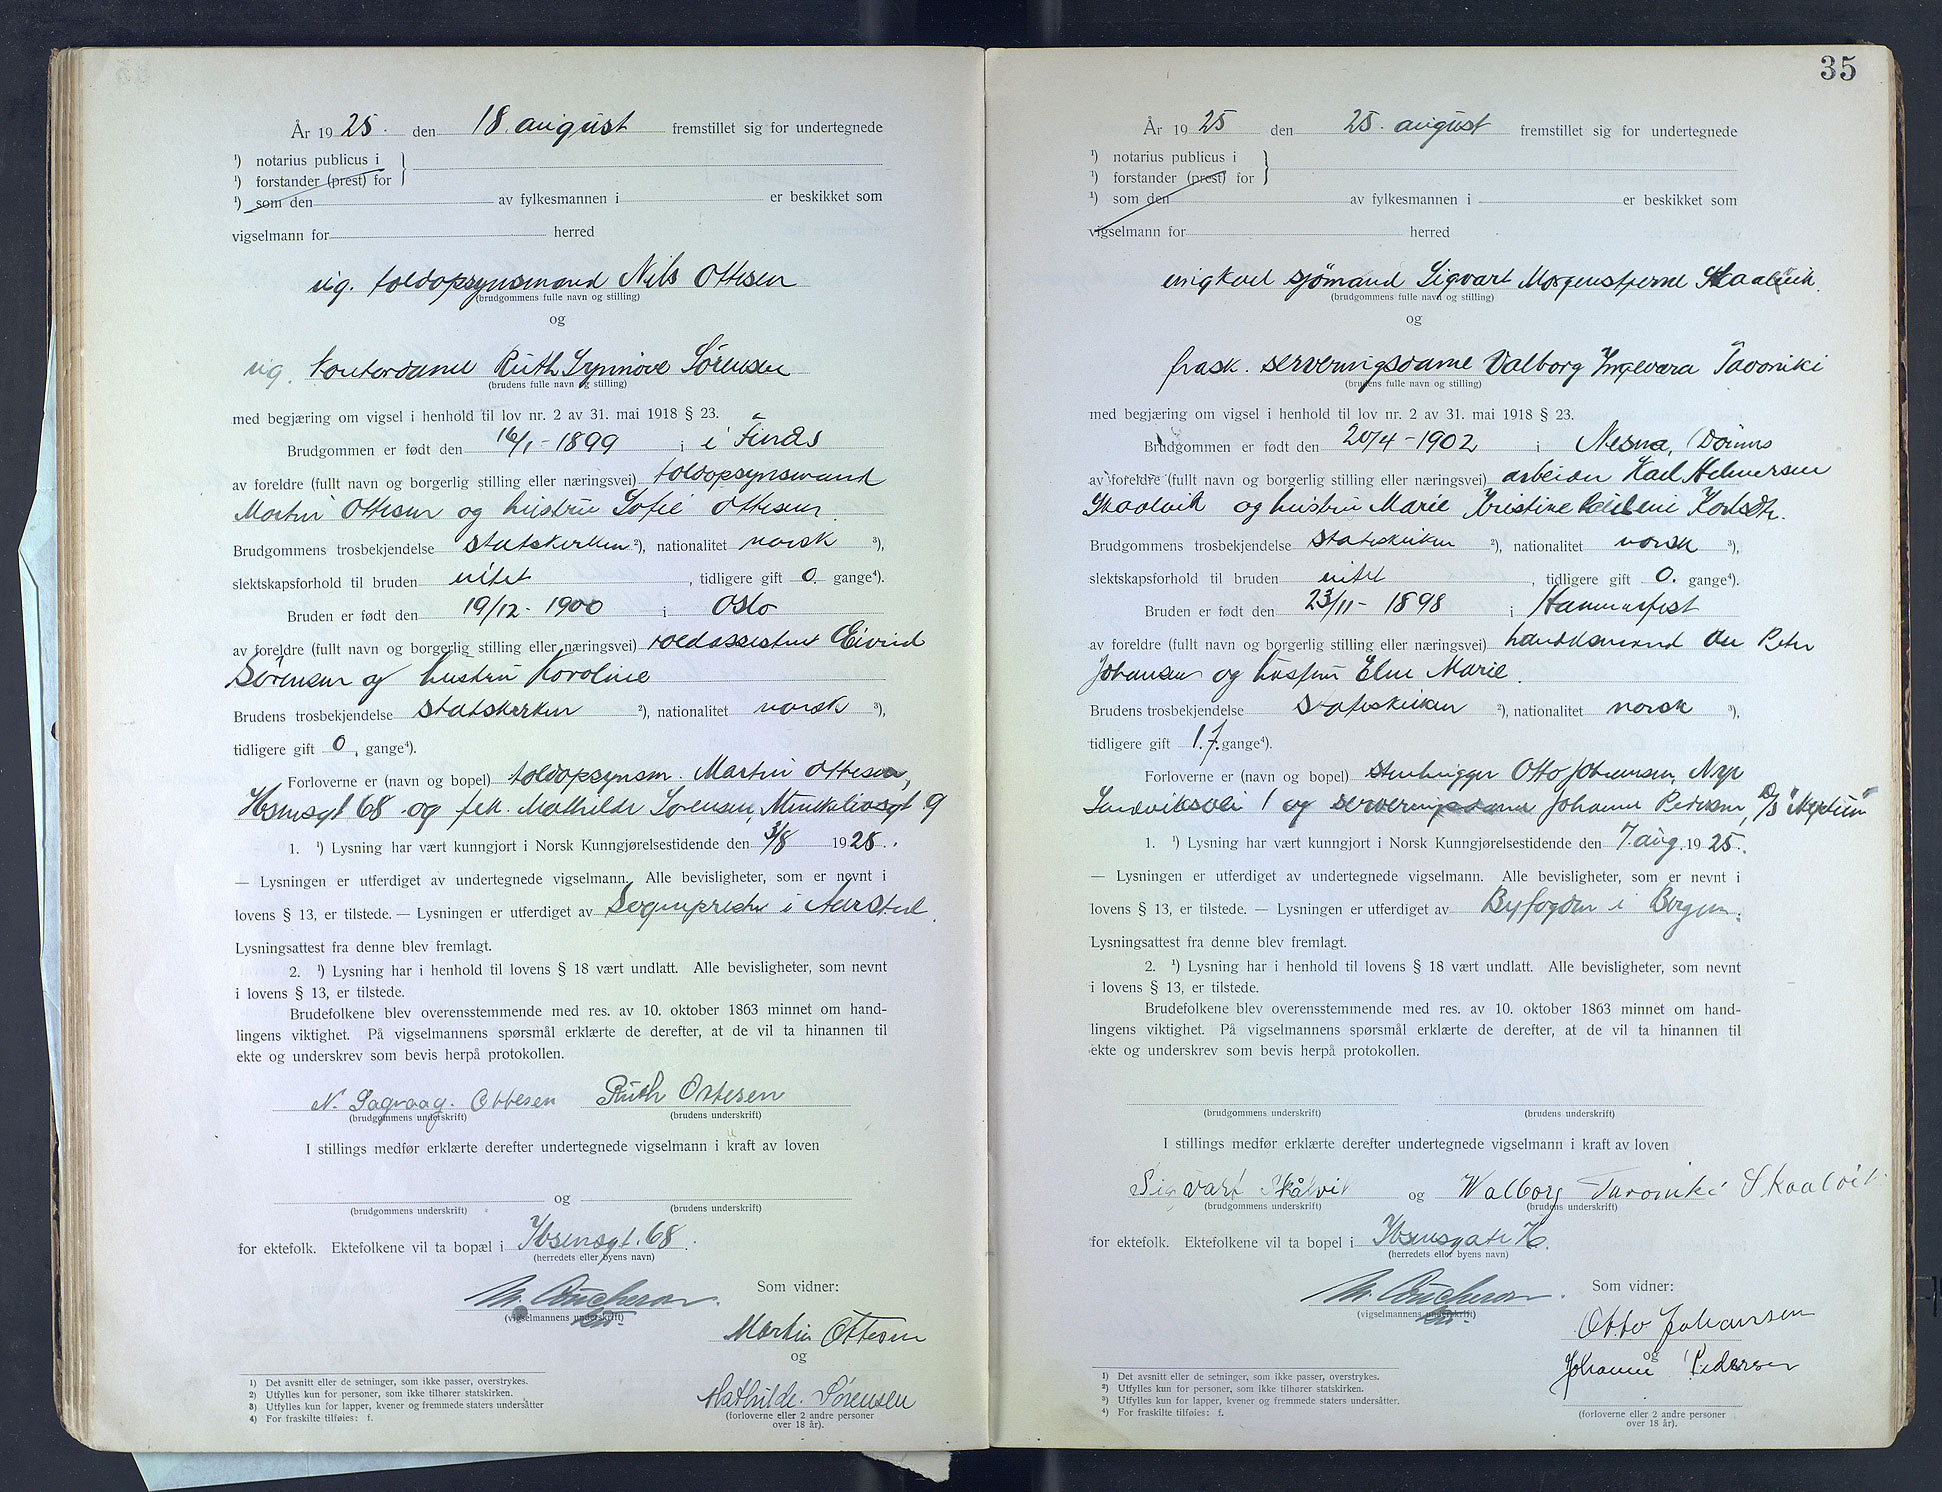 År 1925. den 18. august fremstillet sig for undertegnede
¹) notarius publicus i
¹) forstander (prest) for
¹) som den av fylkesmannen i er beskikket som
vigselmann for herred
ug. toldopsynsmand Nils Ottesen
(brudgommens fulle navn og stilling)
og
ug. kontordame Ruth Synnöve Sørensen
(brudens fulle navn og stilling)
med begjæring om vigsel i henhold til lov nr. 2 av 31. mai 1918 § 23.
Brudgommen er født den 16/1-1899 i i Finås
av foreldre (fullt navn og borgerlig stilling eller næringsvei) toldopsynsmand
Martin Ottesen og hustru Sofie Ottesen
Brudgommens trosbekjendelse statskirken ²), nationalitet norsk ³),
slektskapsforhold til bruden intet, tidligere gift 0. gange⁴).
Bruden er født den 19/12-1900 i Oslo
av foreldre (fullt navn og borgerlig stilling eller næringsvei) toldassistent Eivind
Sørensen og hustru Karoline
Brudens trosbekjendelse statskirken ²), nationalitet norsk ³),
tidligere gift 0, gange⁴).
Forloverne er (navn og bopel) toldopsynsm. Martin Ottesen,
Ibsensgt 68 og frk. Mathilde Sørensen, 9
1. ¹) Lysning har vært kunngjort i Norsk Kunngjørelsestidende den 3/8 1925.
— Lysningen er utferdiget av undertegnede vigselmann. Alle bevisligheter, som er nevnt i
lovens § 13, er tilstede. — Lysningen er utferdiget av Sognepresten i Aarstad.
Lysningsattest fra denne blev fremlagt.
2. ¹) Lysning har i henhold til lovens § 18 vært undlatt. Alle bevisligheter, som nevnt
i lovens § 13, er tilstede.
Brudefolkene blev overensstemmende med res. av 10. oktober 1863 minnet om hand-
lingens viktighet. På vigselmannens spørsmål erklærte de derefter, at de vil ta hinannen til
ekte og underskrev som bevis herpå protokollen.
N. Sagvaag. Ottesen Ruth Ottesen
(brudgommens underskrift) (brudens underskrift)
I stillings medfør erklærte derefter undertegnede vigselmann i kraft av loven
og
(brudgommens underskrift) (brudens underskrift)
for ektefolk. Ektefolkene vil ta bopæl i Ibsensgt. 68.
(herredets eller byens navn)
Som vidner:
(vigselmannens underskrift)
Martin Ottesen
og
Mathilde. Sørensen
(forloverne eller 2 andre personer
over 18 år).
1) Det avsnitt eller de setninger, som ikke passer, overstrykes.
2) Utfylles kun for personer, som ikke tilhører statskirken.
3) Utfylles kun for lapper, kvener og fremmede staters undersåtter
4) For fraskilte tilføies: f.
35
År 1925 den 25. august fremstillet sig for undertegnede
¹) notarius publicus i
¹) forstander (prest) for
¹) som den av fylkesmannen i er beskikket som
vigselmann for herred
ungkarl sjömand Sigvart Morgenstjerne Skaalvik.
(brudgommens fulle navn og stilling)
og
frask. serveringsdame Valborg Ingevara Tavoniki
(brudens fulle navn og stilling)
med begjæring om vigsel i henhold til lov nr. 2 av 31. mai 1918 § 23.
Brudgommen er født den 20/4-1902 i Nesna,
av foreldre (fullt navn og borgerlig stilling eller næringsvei) arbeider Karl Helmersen
Skaalvik og hustru Marie Kristine Karlsdtr.
Brudgommens trosbekjendelse statskirken ²), nationalitet norsk ³),
slektskapsforhold til bruden intet, tidligere gift 0. gange⁴).
Bruden er født den 23/11-1898 i Hammerfest
av foreldre (fullt navn og borgerlig stilling eller næringsvei) handelsmand Peter
Johansen og hustru Elen Marie.
Brudens trosbekjendelse statskirken ²), nationalitet norsk ³),
tidligere gift 1.f. gange⁴).
Forloverne er (navn og bopel) stenhugger Otto Johansen, Nye
Sandviksvei 1 og serveringsdame Johanne Pedersen, D/S "Neptun"
1. ¹) Lysning har vært kunngjort i Norsk Kunngjørelsestidende den 7. aug. 1925.
— Lysningen er utferdiget av undertegnede vigselmann. Alle bevisligheter, som er nevnt i
lovens § 13, er tilstede. — Lysningen er utferdiget av Byfogden i Bergen.
Lysningsattest fra denne blev fremlagt.
2. ¹) Lysning har i henhold til lovens § 18 vært undlatt. Alle bevisligheter, som nevnt
i lovens § 13, er tilstede.
Brudefolkene blev overensstemmende med res. av 10. oktober 1863 minnet om hand-
lingens viktighet. På vigselmannens spørsmål erklærte de derefter, at de vil ta hinannen til
ekte og underskrev som bevis herpå protokollen.
(brudgommens underskrift) (brudens underskrift)
I stillings medfør erklærte derefter undertegnede vigselmann i kraft av loven
Sigvart Skålvik og Walborg Tavoniki Skaalvik
(brudgommens underskrift) (brudens underskrift)
for ektefolk. Ektefolkene vil ta bopel i Ibsensgate
(herredets eller byens navn)
Som vidner:
(vigselmannens underskrift)
Otto Johansen
og
Johanne Pedersen
(forloverne eller 2 andre personer
over 18 år).
¹) Det avsnitt eller de setninger, som ikke passer, overstrykes.
²) Utfylles kun for personer, som ikke tilhører statskirken.
³) Utfylles kun for lapper, kvener og fremmede staters undersåtter.
⁴) For fraskilte tilføies: f.